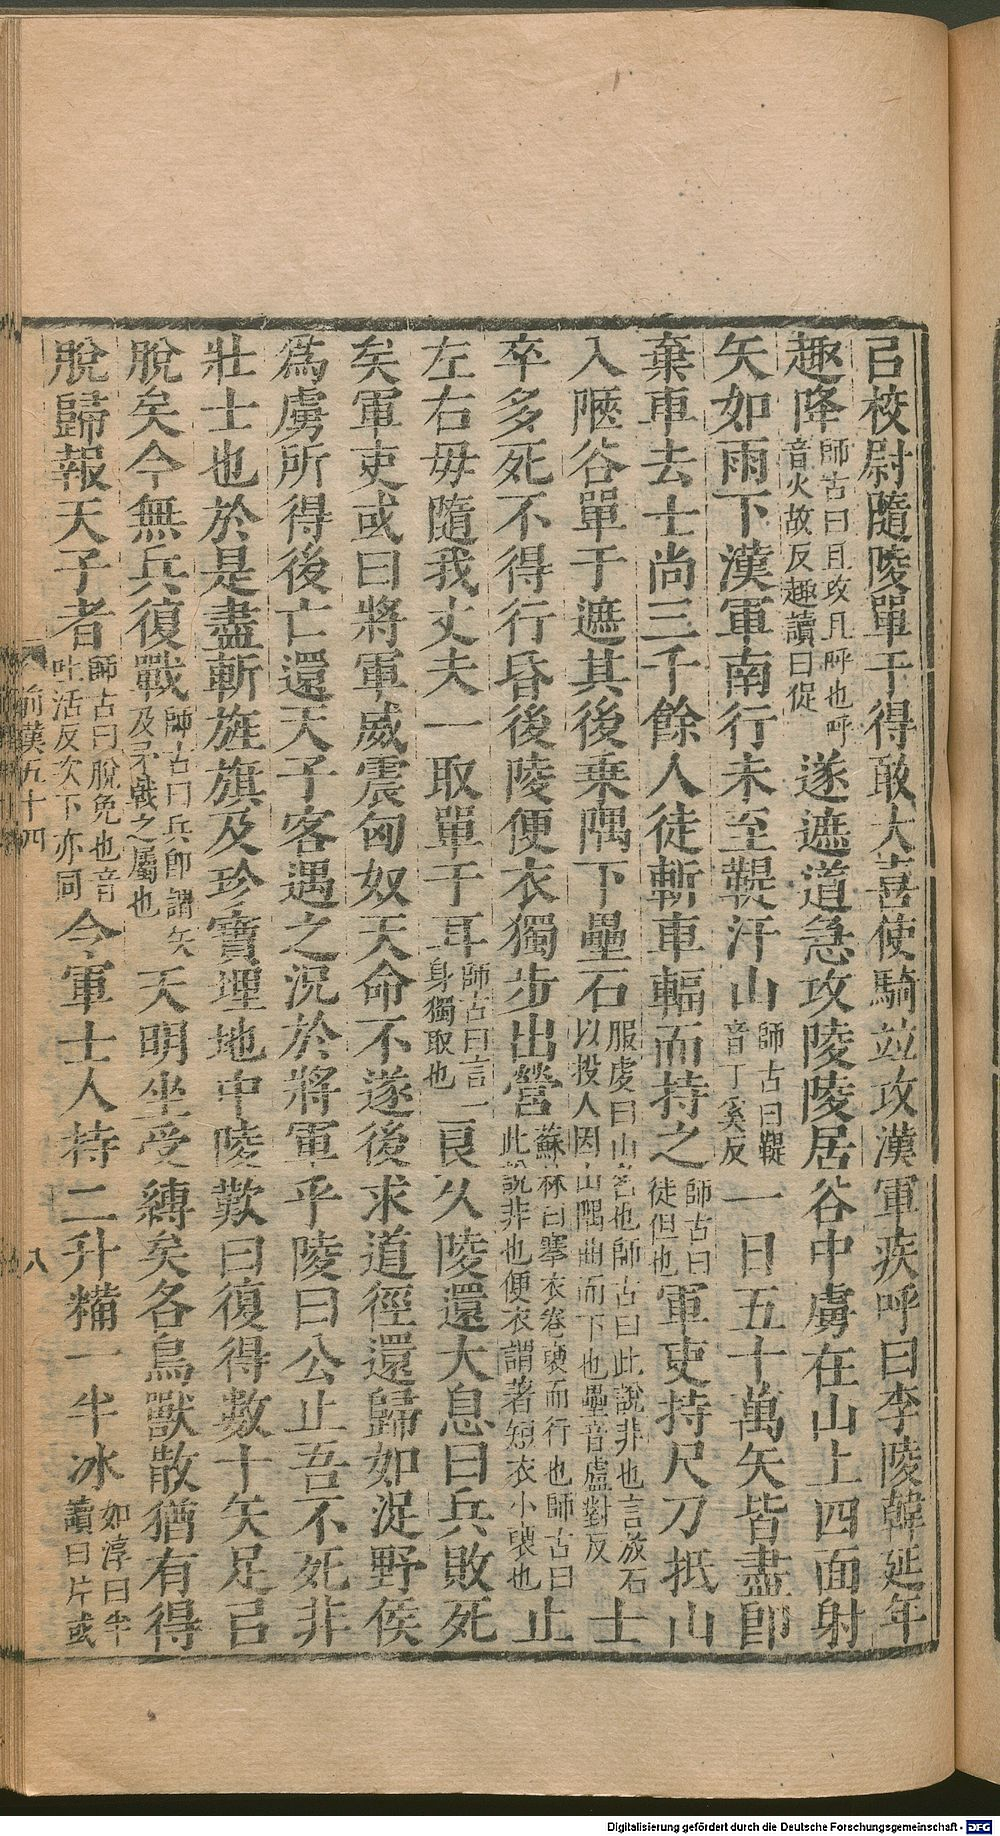 㠯校尉隨陵單于得敢大喜使騎並攻漢軍疾呼曰李陵韓延年
趣降師古曰且攻且呼也呼音火故反趣讀曰促遂遮道急攻陵陵居谷中虜在山上四面射
矢如雨下漢軍南行未至鞮汗山師古曰鞮音丁奚反一日五十萬矢皆盡即
棄車去士尚三千餘人徒斬車輻而持之師古曰徒但也軍吏持尺刀抵山
入陿谷單于遮其後乗隅下壘石服虔曰山名也師古曰此說非也言放石以投人因山隅曲而下也壘音盧對反士
卒多死不得行昏後陵便衣獨步出營蘇林曰搴衣卷褏而行也師古曰此說非也便衣謂著短衣小褏也止
左右毋隨我丈夫一取單于耳師古曰言一身獨取也良久陵還大息曰兵敗死
矣軍吏或曰將軍威震匈奴天命不遂後求道徑還歸如浞野侯
為虜所得後亡還天子客遇之況於將軍乎陵曰公止吾不死非
壯士也於是盡斬旌旗及珍寶埋地中陵歎曰復得數十矢足㠯
脫矣今無兵復戰師古曰兵即謂矢及矛戟之屬也天明坐受縛矣各鳥獸散猶有得
脫歸報天子者師古曰脫免也音吐活反次下亦同今軍士人持二升糒一半冰如淳曰半讀曰片或
前漢五十四
八
Digitalisierung gefördert durch die Deutsche Forschungsgemeinschaft - DFG